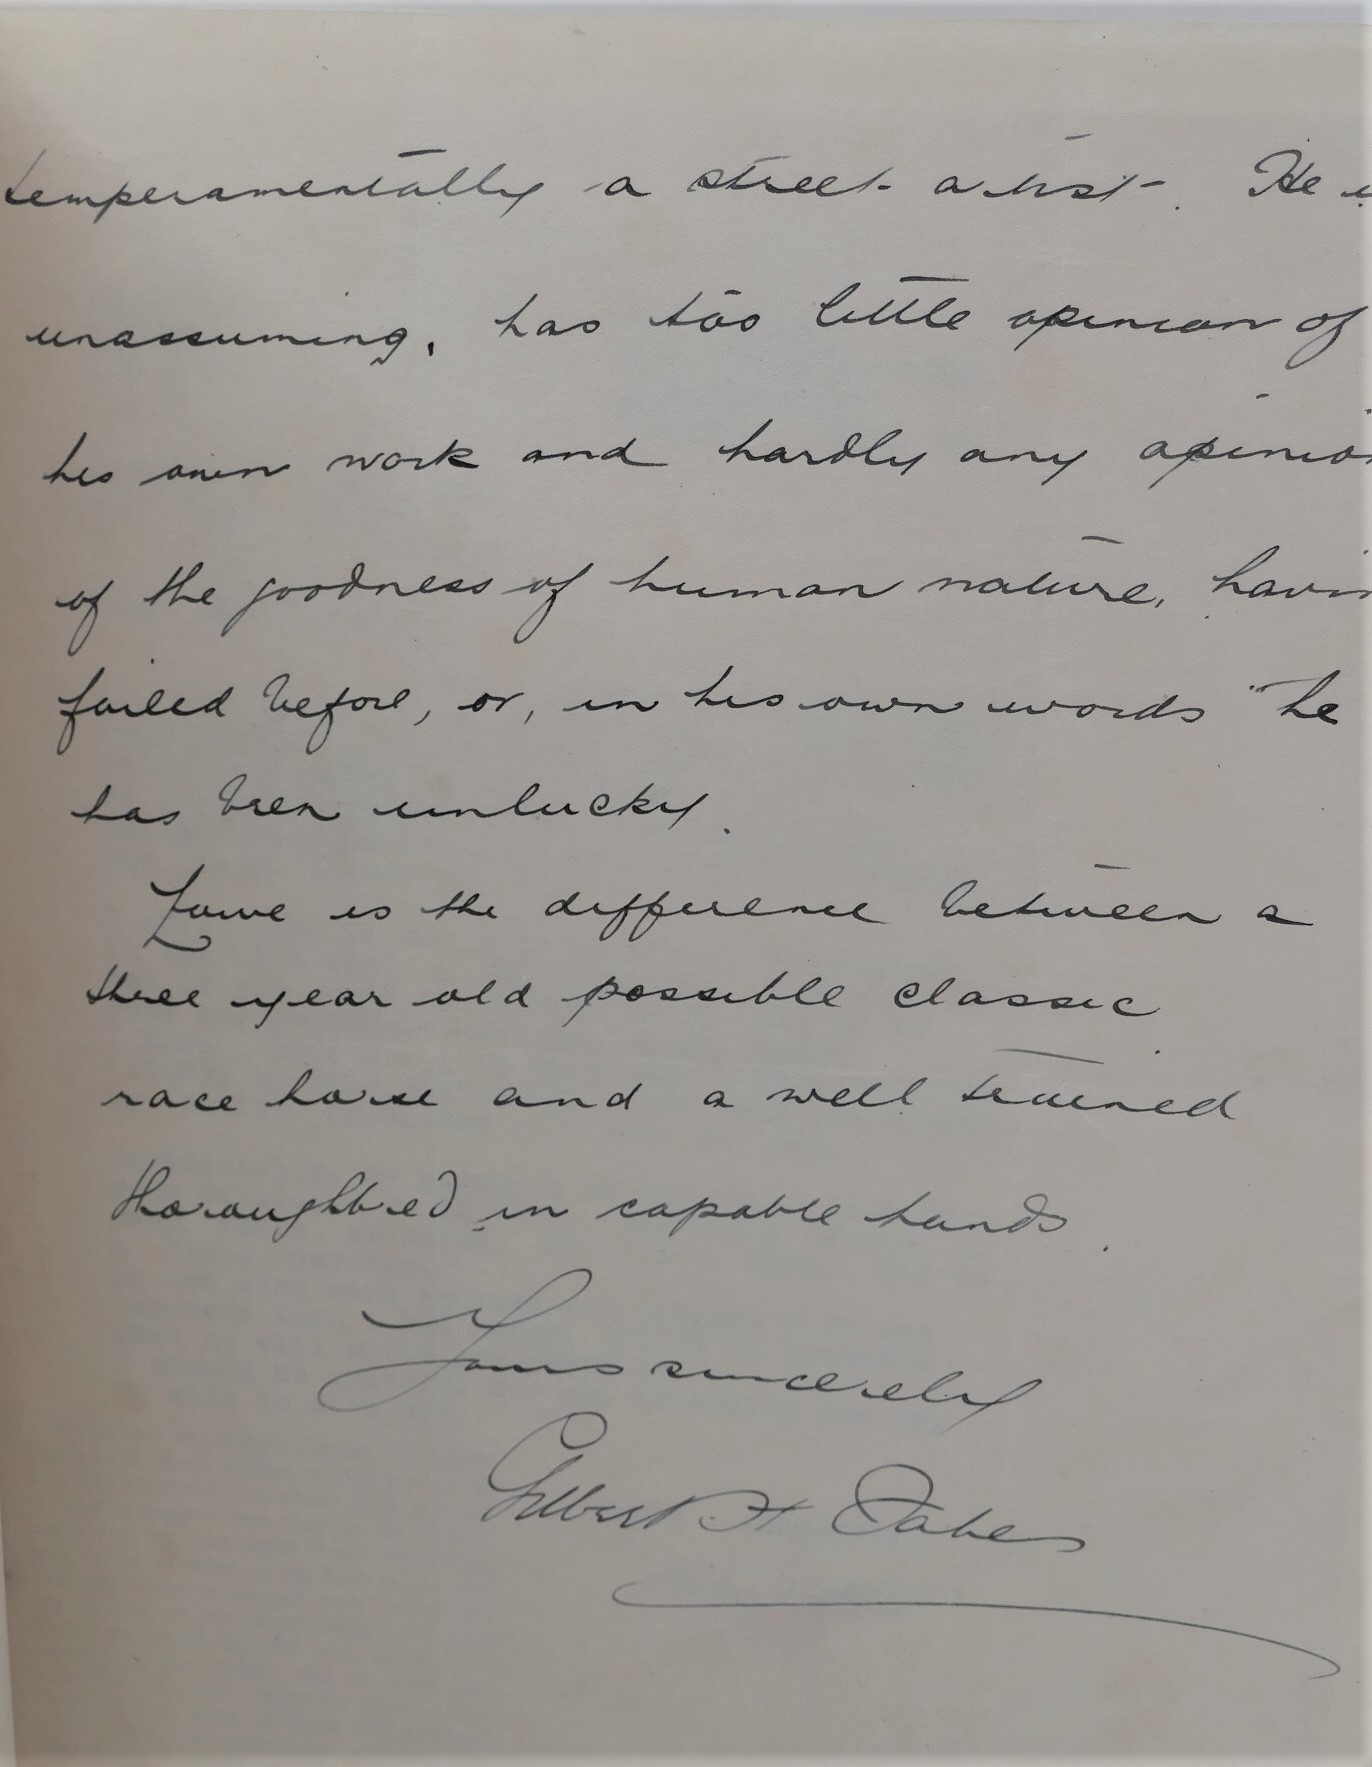 temperamentally a street artist. He i
unassuming, has too little opinion of
his own work and hardly any opinion
of the goodness of human nature, havin
failed before, or, in his own words "he
has been unlucky.
is the difference between a
three year old possible classic
race horse and a well trained
thoroughbred in capable hands.
Yours sincerely
Gilbert H Oakes